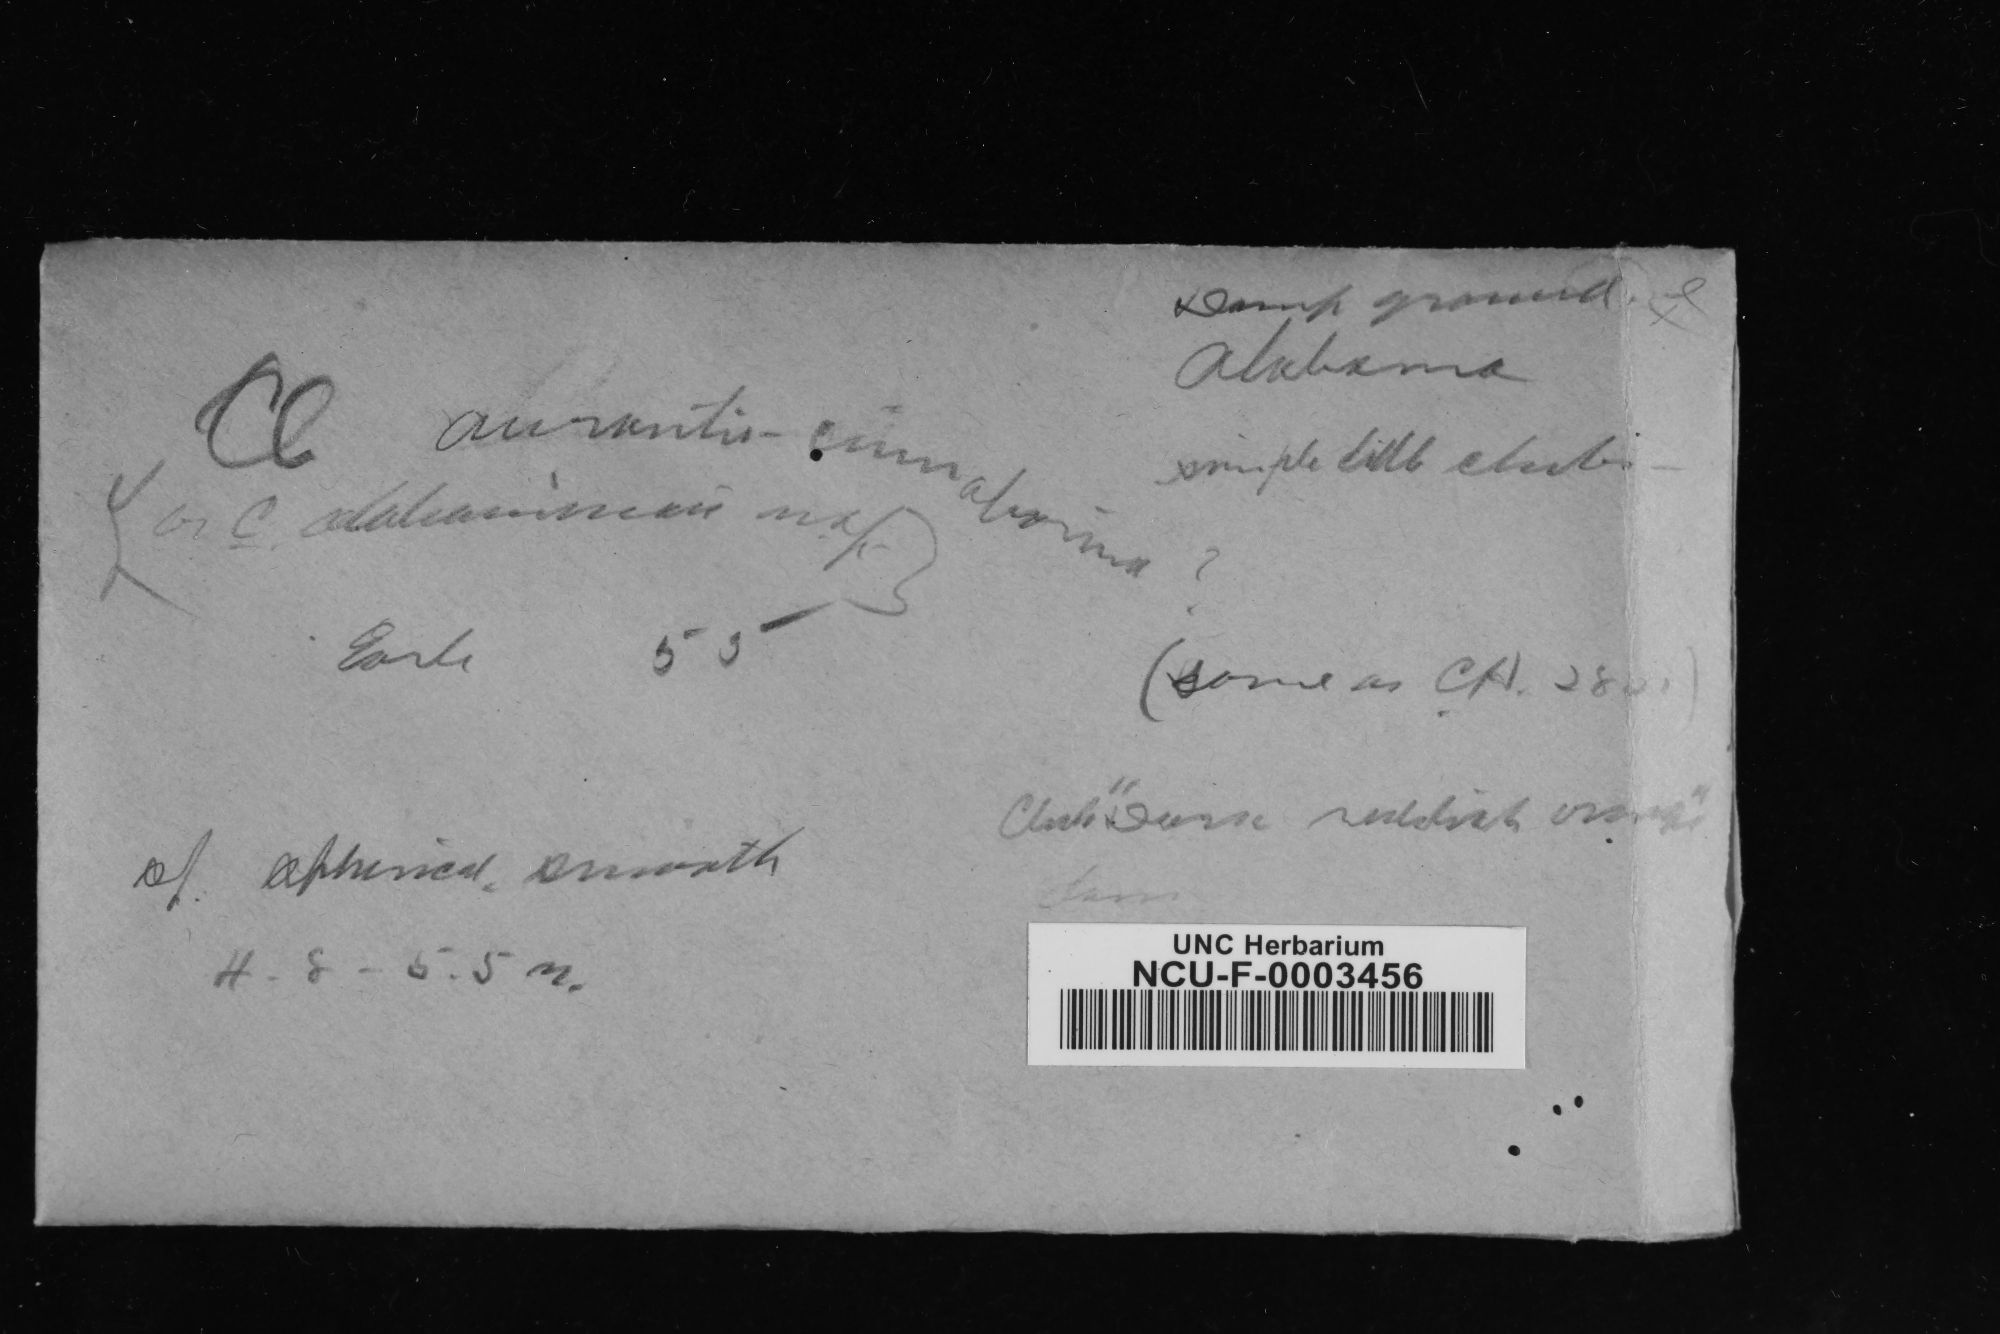 Damp ground
Alabama
Cl aurantio-cinnabarina ?
simple little clubs -
or C. alabamiensis n. sp.
Earle 55
(same as C.H. 28
Club "Dense reddish orange"
sp. spherical, smooth
4.8 - 5.5 µ.
UNC Herbarium
NCU-F-0003456